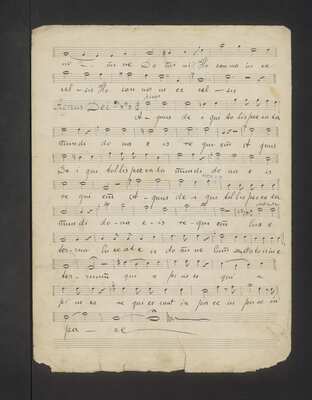 no Do mi ni Ho san na in ex
cel - sis Ho san na in ex cel - sis
Agnus Dei
A - gnus de i qui tollis peccata
mundi do na e is re qui em A gnus
De i qui tollis peccata mundi do na e is
re qui em A - gnus de i qui tollis peccata
mundi do - na e - is re - qui em lux e
ter - na luceat e is do mi ne
ter - num qui a pi us es qui a
pi us es re qui es cant in pa ce in pa ce in
pa - ce